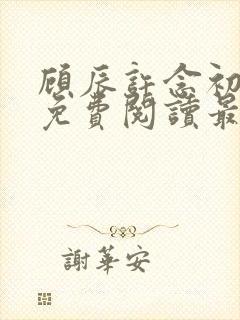 顧辰許念初
免費閱讀最
謝華安